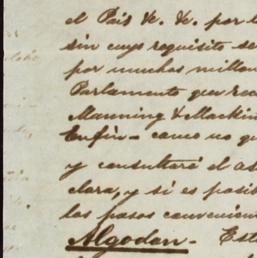 el Pais &c. &c. por l
sin cuyo requisito se
por muchos millon
Parlamento que rec
Manning & Mackin
Enfin - como no qu
y consultaré el as
clara, y si es posib
los pasos convenien
Algodon - Est